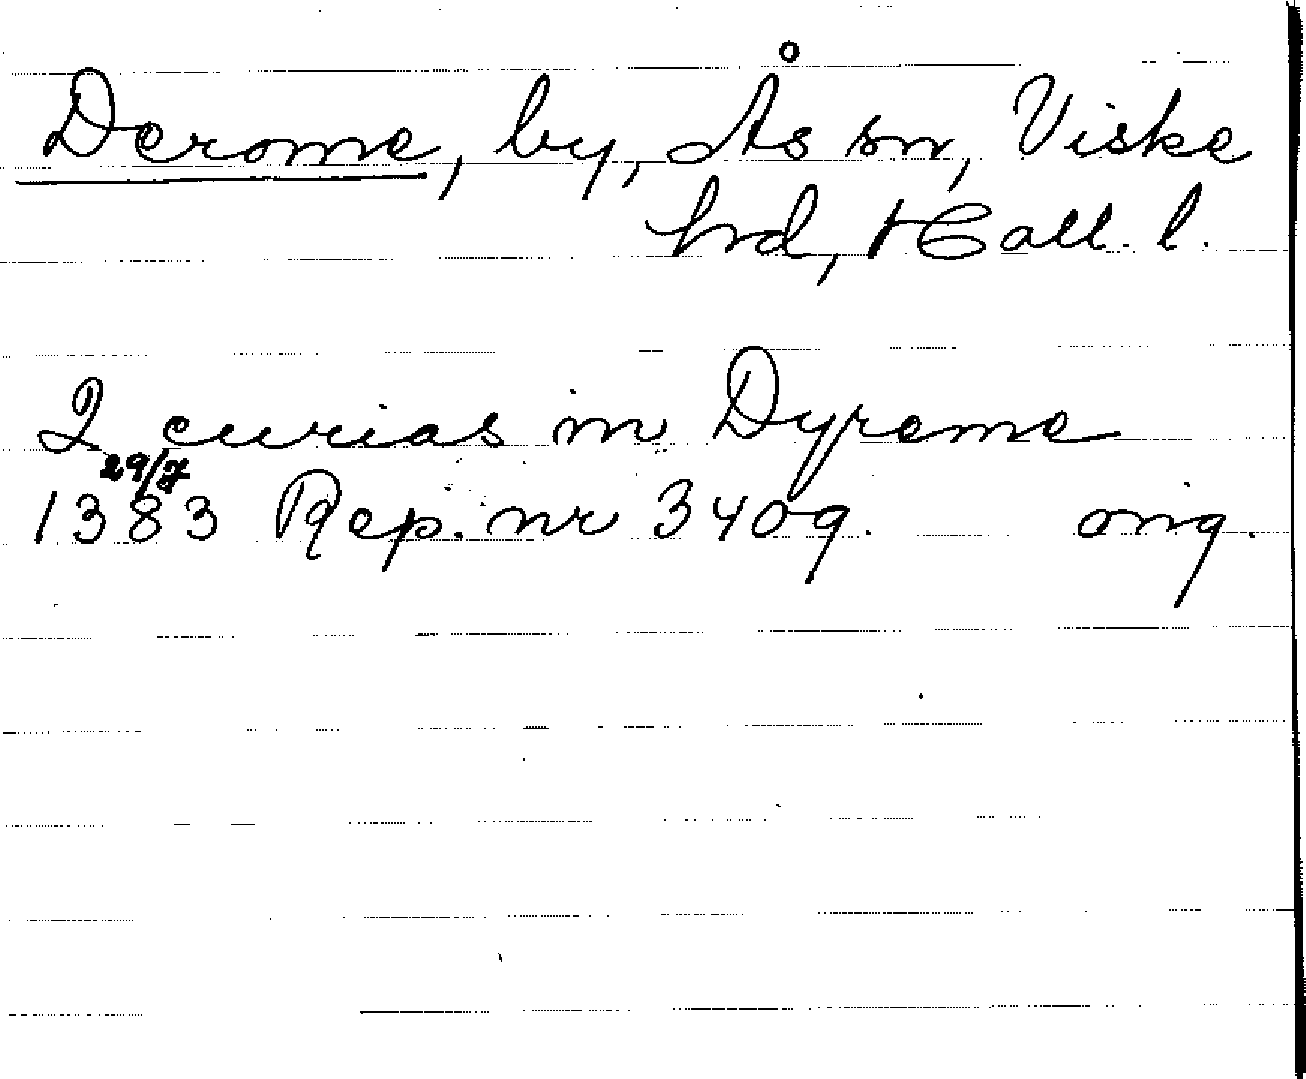 Derome, by, Ås sn, Viske
hrd, Hall. l.
2 curias in Dyreme
29/7
1383 Rep. nr 3409. orig.